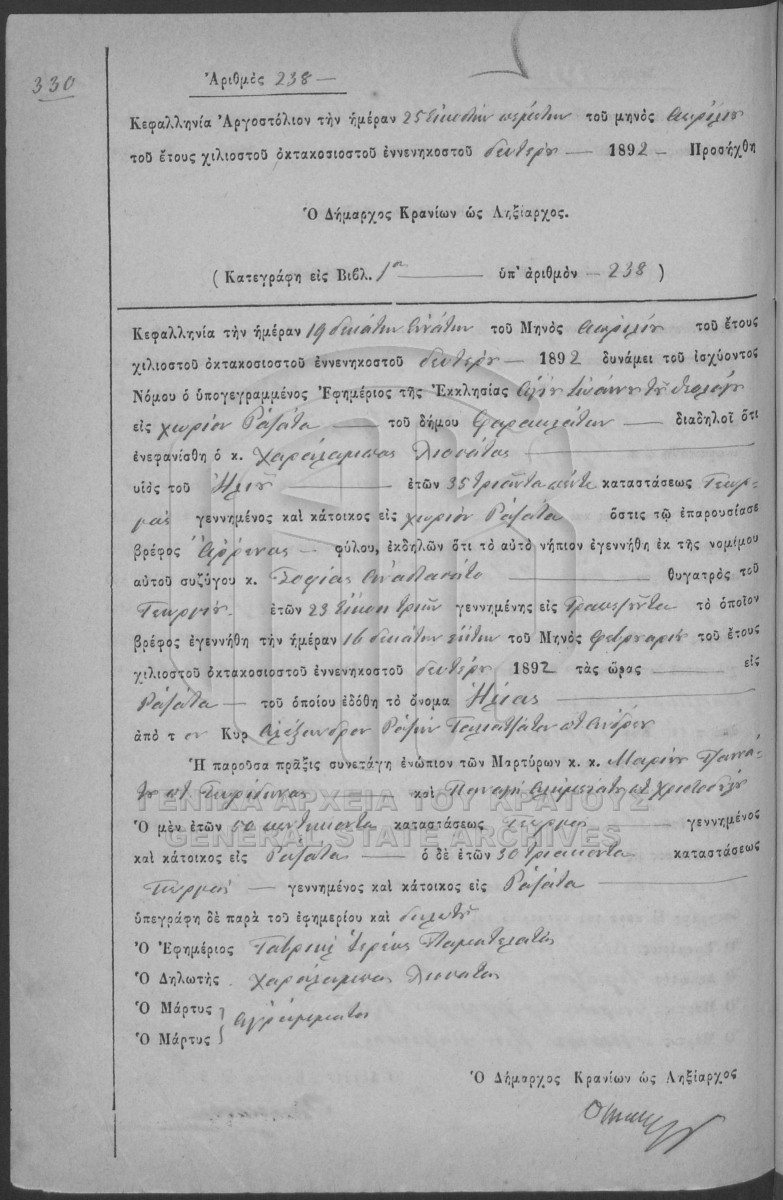 330
Ἀριθμὸς 238 —
Κεφαλληνία Ἀργοστόλιον τὴν ἡμέραν 25 Εἰκοστὴν πέμπτην τοῦ μηνὸς Ἀπριλίου
τοῦ ἔτους χιλιοστοῦ ὀκτακοσιοστοῦ ἐννενηκοστοῦ δευτέρου — 1892 — Προσήχθη
Ὁ Δήμαρχος Κρανίων ὡς Ληξίαρχος.
(Κατεγράφη εἰς Βιβλ. 1ον — ὑπ' ἀριθμὸν — 238)
Κεφαλληνία τὴν ἡμέραν 19 δεκάτην ἐνάτην τοῦ Μηνὸς Ἀπριλίου τοῦ ἔτους
χιλιοστοῦ ὀκτακοσιοστοῦ ἐννενηκοστοῦ δευτέρου — 1892 δυνάμει τοῦ ἰσχύοντος
Νόμου ὁ ὑπογεγραμμένος Ἐφημέριος τῆς Ἐκκλησίας Ἁγίου Ἰωάννου τοῦ Θεολόγου
εἰς χωρίον Ράζατα — τοῦ δήμου Φαρακλάτων — διαδηλοῖ ὅτι
ἐνεφανίσθη ὁ κ. Χαράλαμπος Λιοσάτος —
υἱὸς τοῦ Ἠλίου — ἐτῶν 35 τριάντα πέντε καταστάσεως Γεωρ-
γὸς γεννημένος καὶ κάτοικος εἰς χωρίον Ράζατα ὅστις τῷ ἐπαρουσίασε
βρέφος Ἄρρενος — φύλου, ἐκδηλῶν ὅτι τὸ αὐτὸ νήπιον ἐγεννήθη ἐκ τῆς νομίμου
αὐτοῦ συζύγου κ. Σοφίας Ἀναστασάτο — θυγατρὸς τοῦ
Γεωργίου. ἐτῶν 23 Εἴκοσι τριῶν γεννημένης εἰς Τραπεζόντα τὸ ὁποῖον
βρέφος ἐγεννήθη τὴν ἡμέραν 16 δεκάτην ἕκτην τοῦ Μηνὸς Φεβρουαρίου τοῦ ἔτους
χιλιοστοῦ ὀκτακοσιοστοῦ ἐννενηκοστοῦ δευτέρου 1892 τὰς ὥρας — εἰς
Ράζατα — τοῦ ὁποίου ἐδόθη τὸ ὄνομα Ἠλίας —
ἀπὸ τ ον Κυρ Ἀλέξανδρον
Ἡ παροῦσα πρᾶξις συνετάγη ἐνώπιον τῶν Μαρτύρων κ. κ. Μαρίνου
— καὶ Παναγῆ
Ὁ μὲν ἐτῶν 50 πεντήκοντα καταστάσεως γεωργοῦ — γεννημένος
καὶ κάτοικος εἰς Ράζατα — ὁ δὲ ἐτῶν 30 τριάκοντα καταστάσεως
Γεωργοῦ — γεννημένος καὶ κάτοικος εἰς Ράζατα —
ὑπεγράφη δὲ παρὰ τοῦ ἐφημερίου καὶ δηλωτοῦ
Ὁ Ἐφημέριος Γαβριὴλ Ἱερεὺς
Ὁ Δηλωτής Χαράλαμπος Λιοσάτος
Ὁ Μάρτυς } ἀγράμματοι
Ὁ Μάρτυς
Ὁ Δήμαρχος Κρανίων ὡς Ληξίαρχος
ΓΕΝΙΚΑ ΑΡΧΕΙΑ ΤΟΥ ΚΡΑΤΟΥΣ
GENERAL STATE ARCHIVES